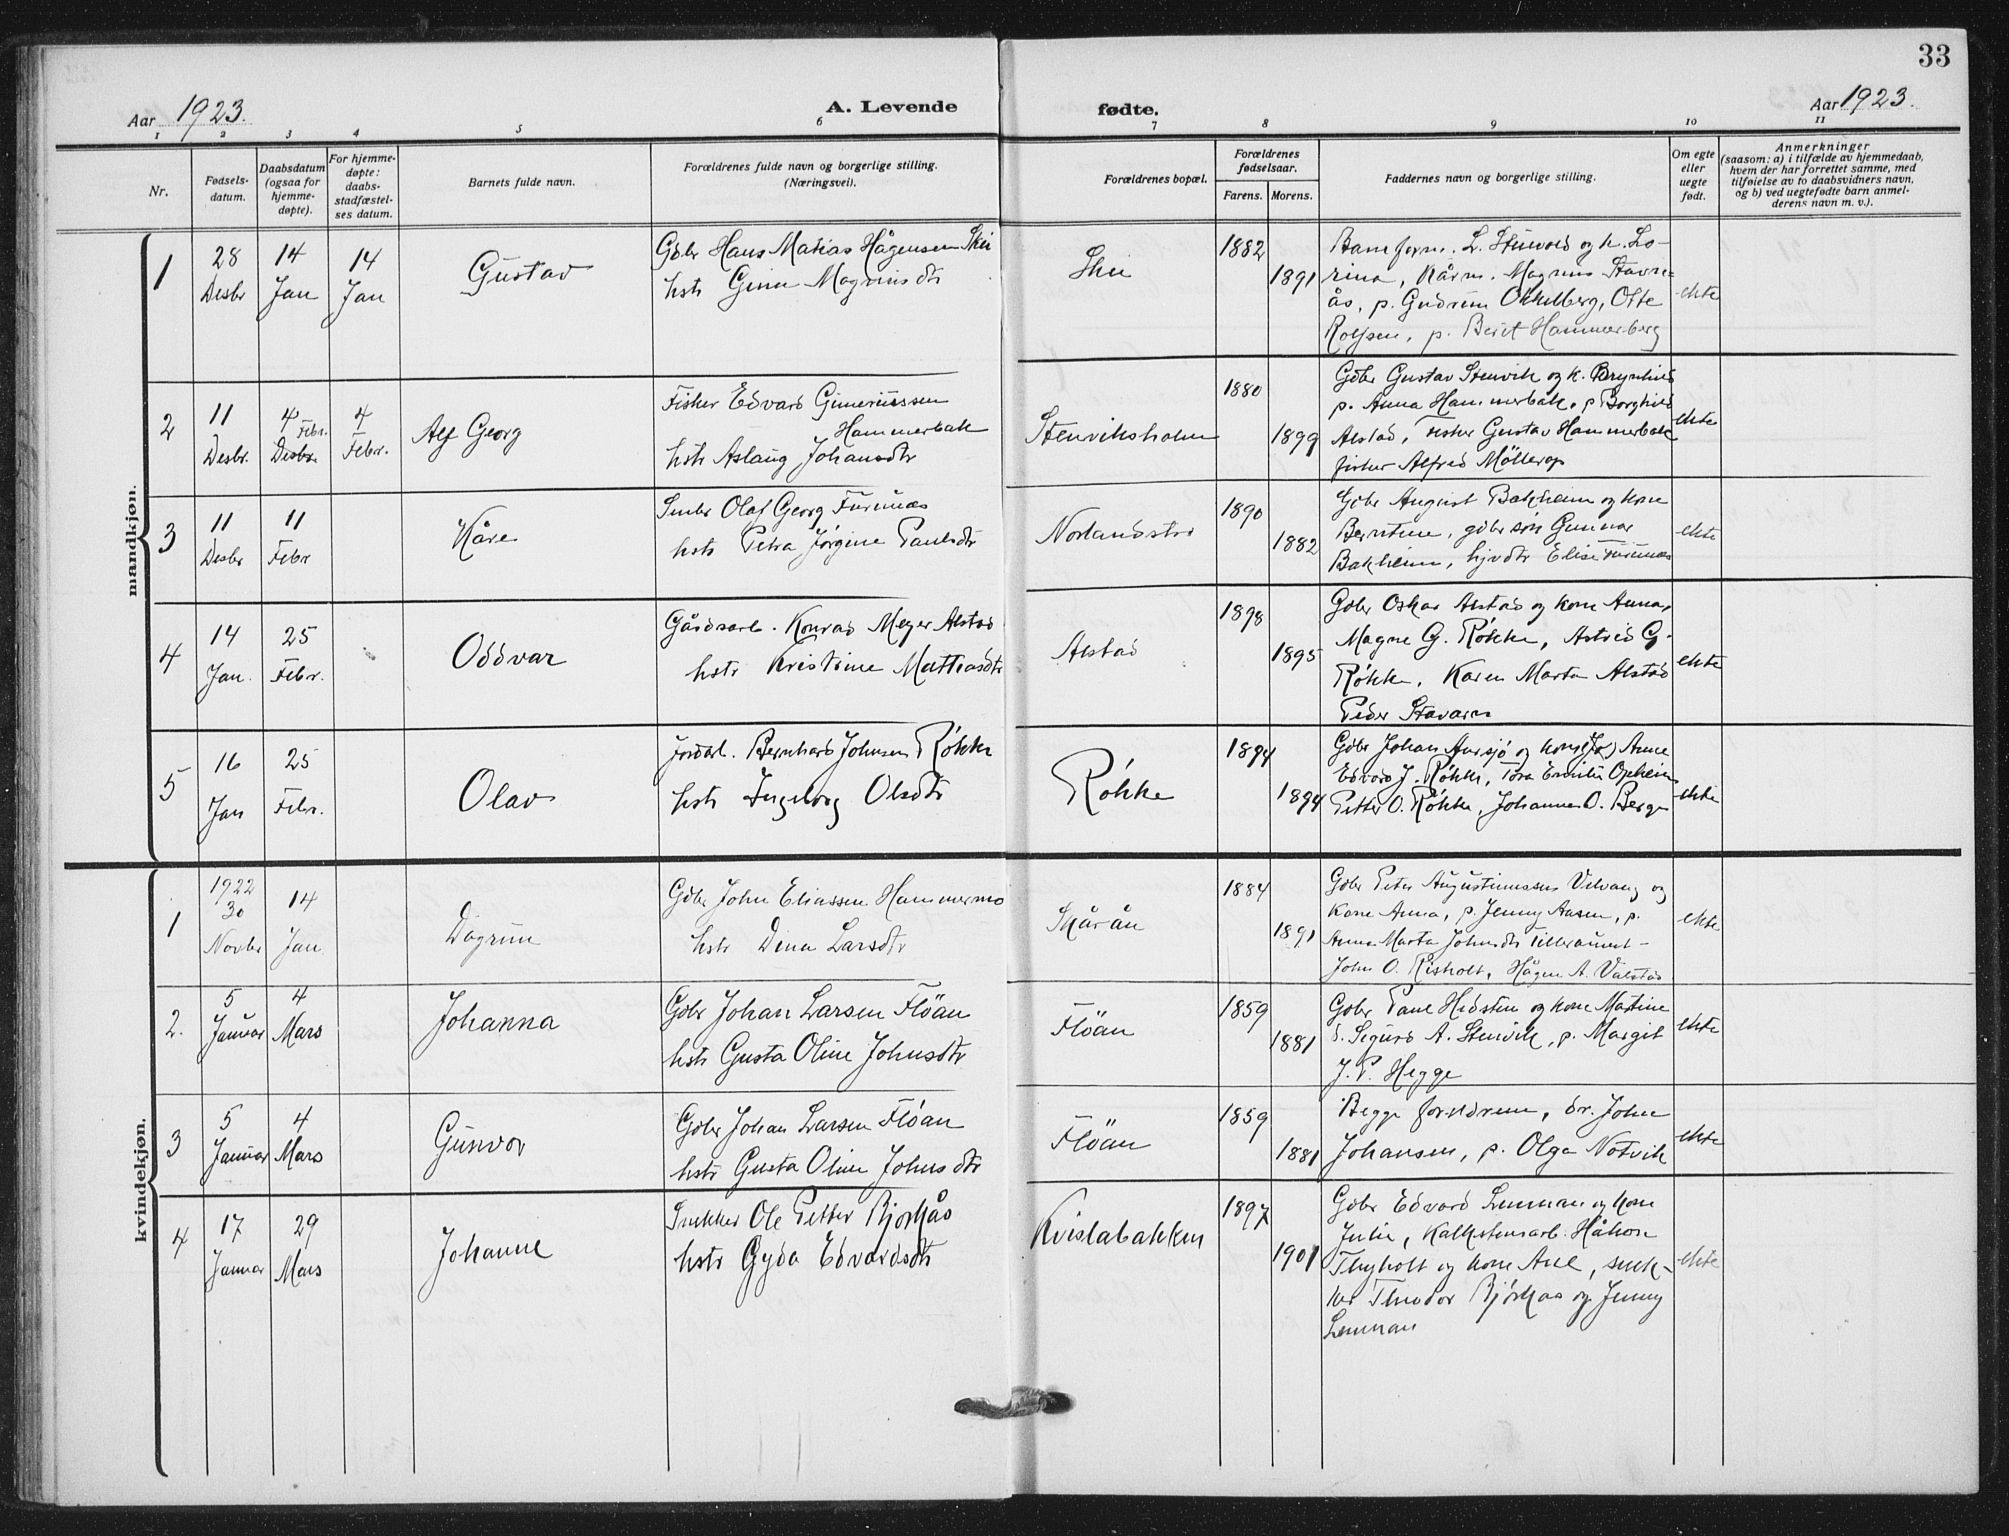 33
Aar 1923. A. Levende fødte. Aar 1923.
1 2 3 4 5 6 7 8 9 10 11
Nr.
Fødsels-
datum.
Daabsdatum
(ogsaa for
hjemme-
døpte).
For hjemme-
døpte:
daabs-
stadfæstel-
ses datum.
Barnets fulde navn.
Forældrenes fulde navn og borgerlige stilling.
(Næringsvei).
Forældrenes bopæl.
Forældrenes
fødselsaar.
Farens. Morens.
Faddernes navn og borgerlige stilling.
Om egte
eller
uegte
født.
Anmerkninger
(saasom: a) i tilfælde av hjemmedaab,
hvem der har forrettet samme, med
tilføielse av to daabsvidners navn,
og b) ved uegtefødte barn anmel-
derens navn m. v.).
mandkjøn.
1
28
Desbr
14
Jan
14
Jan
Gustav
Gbr Hans Matias Hågensen Skei
hstr Gina Magnusdtr
Skei
1882
1891
Baneform. L. Stuevold og k. Lo-
rina, Kårm. Magnus Stavn-
ås, p. Gudrun Okkelberg, Otte
Rolfsen, p. Berit Hammerberg
ekte
2
11
Desbr.
4 Febr.
Desbr.
4
Febr.
Alf Georg
Fisker Edvard Gimeriussen
Hammerbak
hstr Aslaug Johansdtr
Stenviksholm
1880
1899
Gbr Gustav Stenvik og k. Brynhild
p. Anna Hammerbak, p Borghild
Alstad, Fisker Gustav Hammerbak
fisker Alfred Möllerop
ekte
3
11
Desbr
11
Febr
Kåre
Smbr Olaf Georg Furunes
hstr Petra Jørgine Paulsdtr
1890
1882
Gbr August Bakheim og kone
Berntine, gbr søn Gunnar
Bakheim, hjvdtr Elise Furunes
ekte
4
14
Jan.
25
Febr.
Oddvar
Gårdsarb. Konrad Meyer Alstad
hstr Kristine Mattiasdtr
Alstad
1898
1895
Gbr Oskar Alstad og kone Anna,
Magne G. Røkke, Astrid G.
Røkke, Karen Marta Alstad
Peder Stavaren
ekte
5
16
Jan
25
Febr.
Olav
Jordarb. Bernhard Johnsen Røkke
hstr Ingeborg Olsdtr
Røkke
1894
1894
Gbr Johan Aursjö og kone (Jo) Anne
Edvard J. Røkke, Tora Emilie Opheim
Petter O. Røkke, Johannes O. Berge
ekte
kvindekjøn.
1
1922
30
Novbr
14
Jan.
Dagrun
Gbr John Eliassen Hammermo
hstr Dina Larsdtr
Skårån
1884
1891
Gbr Peter Augustinussen Velvang og
Kone Anna, p. Jenny Aasen, p.
Anna Marta Johnsdtr Tillerånd-
John O. Risholt, Hågen A. Valstad
ekte
2.
5
Januar
4
Mars
Johanna
Gbr Johan Larsen Flöan
hstr Gusta Oline Johnsdtr
Flöan
1859
1881
Gbr Paul Hidsten og kone Martine
s. Sigurd A. Stenvik, p. Margit
J. P. Hegge
ekte
3
5
Januar
4
Mars
Gunvor
Gbr Johan Larsen Flóan
hstr Gusta Oline Johnsdtr
Flöan
1859
1881
Begge forældrene, dr. John
Johansen, p. Olga Notvik
ekte
4
17
Januar
29
Mars
Johanne
Snekker Ole Petter Bjørkås
hstr Gyda Edvardsdtr
Kvislabakken
1897
1901
Gbr Edvard Lemman og kone
Julie, Kalkstensarb. Håkon
Thyholt og kone Ane, snek-
ker Theodor Bjørkaas og Jenny
Lemman
ekte